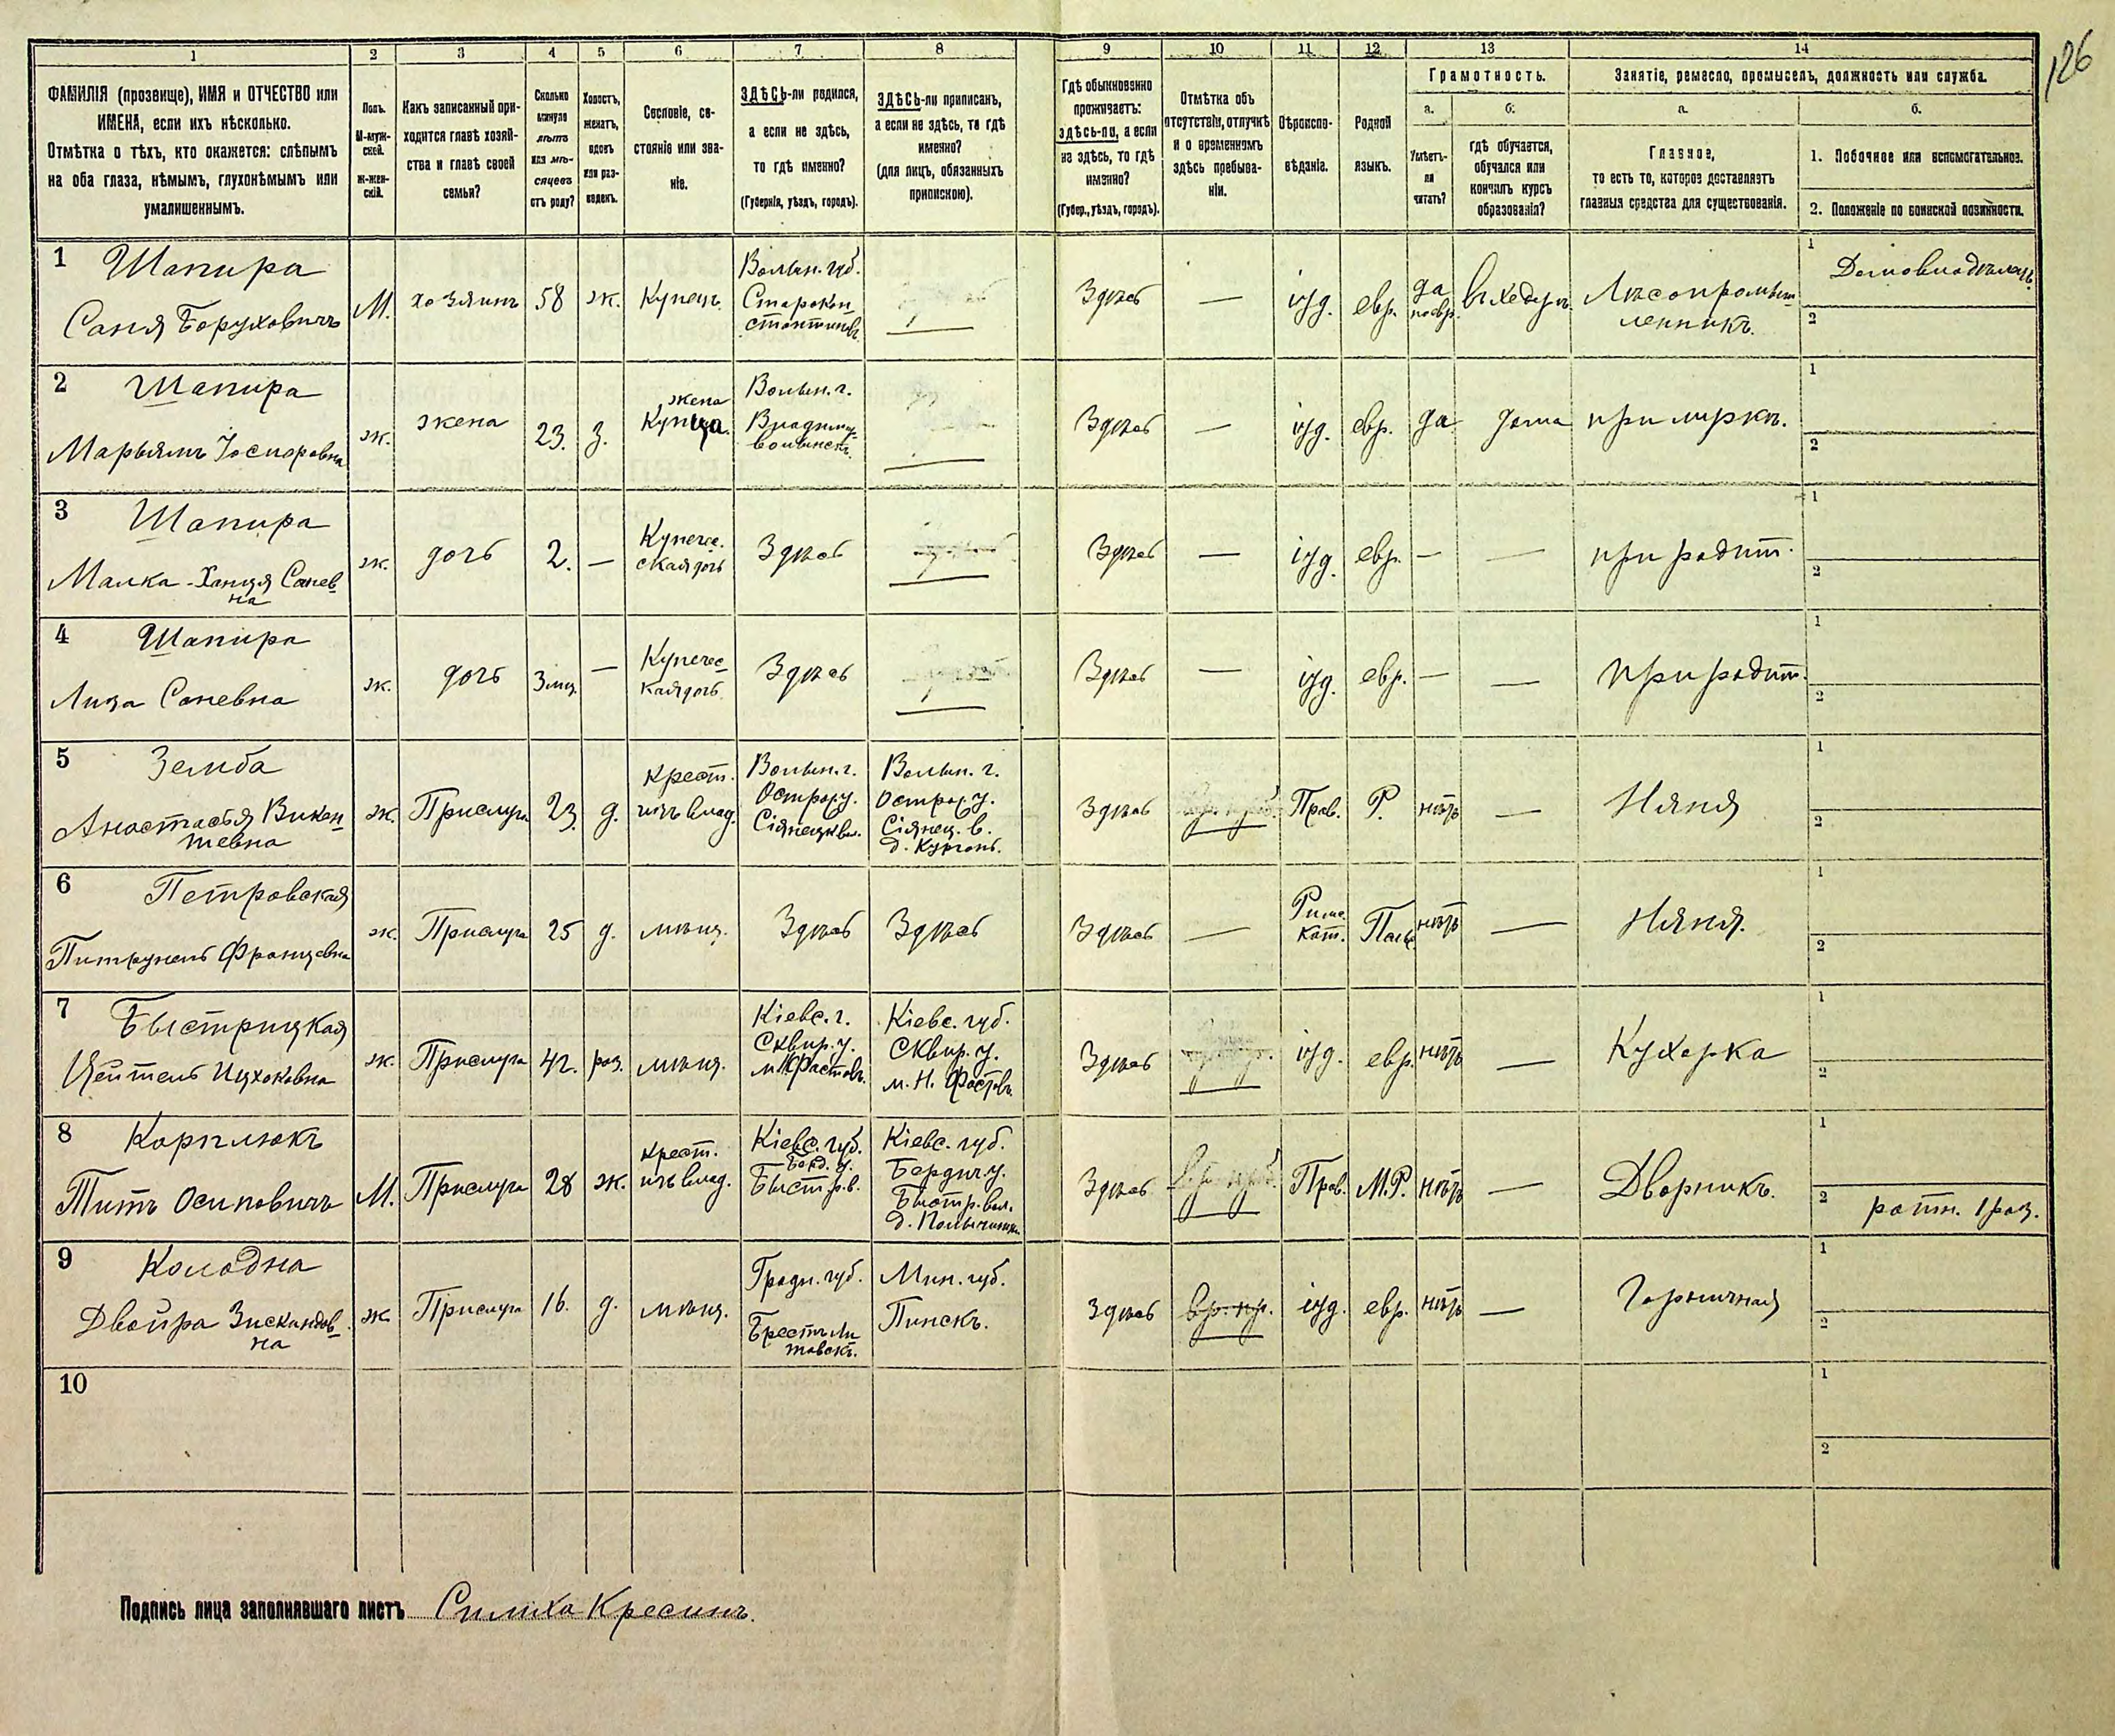 126
1 2 3 4 5 6 7 8 9 10 11 12 13 14
ФАМИЛІЯ (прозвище), ИМЯ и ОТЧЕСТВО или
ИМЕНА, если ихъ нѣсколько.
Отмѣтка о тѣхъ, кто окажется: слѣпымъ
на оба глаза, нѣмымъ, глухонѣмымъ или
умалишеннымъ.
Полъ.
М-муж-
ской.
Ж-жен-
скій.
Какъ записанный при-
ходится главѣ хозяй-
ства и главѣ своей
семьи?
Сколько
минуло
лѣтъ
или мѣ-
сяцевъ
отъ роду?
Холостъ,
женатъ,
вдовъ
или раз-
веденъ.
Сословіе, со-
стояніе или зва-
ніе.
ЗДѢСЬ-ли родился,
а если не здѣсь,
то гдѣ именно?
(Губернія, уѣздъ, городъ).
ЗДѢСЬ-ли приписанъ,
а если не здѣсь, то гдѣ
именно?
(для лицъ, обязанныхъ
припискою).
Гдѣ обыкновенно
проживаетъ:
здѣсь-ли, а если
не здѣсь, то гдѣ
именно?
(Губер., уѣздъ, городъ).
Отмѣтка объ
отсутствіи, отлучкѣ
и о временномъ
здѣсь пребыва-
ніи.
Вѣроиспо-
вѣданіе.
Родной
языкъ.
Грамотность.
а. б.
Умѣетъ-
ли
читать?
гдѣ обучается,
обучался или
кончилъ курсъ
образованія?
Занятіе, ремесло, промыселъ, должность или служба.
а. б.
Главное,
то есть то, которое доставляетъ
главныя средства для существованія.
1. Побочное или вспомогательное.
2. Положеніе по воинской повинности.
1 Шапира
Саня Боруховичъ
М. хозяинъ 58 ж. Купецъ
Волын. губ.
Старокон-
стантиновъ
—
Здѣсь — іуд. евр. да
по евр. въ хедерѣ
Лѣсопромыш-
ленникъ.
1 Домовладѣлецъ.
2
2 Шапира
Марьямъ Іосиповна
ж. жена 23. з.
жена
Купца.
Волын. г.
Владимір-
волынскъ.
—
Здѣсь — іуд. евр. да дома при мужѣ.
1
2
3 Шапира
Малка-Ханця Санев-
на
ж. дочь 2. —
Купече-
ская дочь
Здѣсь —
Здѣсь — іуд. евр. — — при родит.
1
2
4 Шапира
Лиза Саневна
ж. дочь 3 мц. —
Купечес-
кая дочь
Здѣсь —
Здѣсь — іуд. евр. — — при родит.
1
2
5 Земба
Анастасья Викен-
тевна
ж. Прислуга 23. д.
крест.
изъ влад.
Волын. г.
Острог. у.
Сіянецк. вл.
Волын. г.
Острог. у.
Сіянец. в.
д. Курганъ.
Здѣсь Прав. Р. нѣтъ — Няня
1
2
6 Петровская
Питрунель Францовна
ж. Прислуга 25 д. мѣщ. Здѣсь Здѣсь
Здѣсь —
Римс.
кат.
Поль. нѣтъ — Няня.
1
2
7 Быстрицкая
Цейтель Ицкоковна
ж. Прислуга 42. раз. мѣщ.
Кіевс. г.
Сквир. у.
м. Н. Фастовъ.
Кіевс. губ.
Сквир. у.
м. Н. Фастовъ.
Здѣсь іуд. евр. нѣтъ — Кухарка
1
2
8 Карплюкъ
Титъ Осиповичъ
М. Прислуга 28 ж.
крест.
изъ влад.
Кіевс. губ.
Берд. у.
Быстр. в.
Кіевс. губ.
Бердич. у.
Быстр. вол.
Здѣсь Прав. М.Р. нѣтъ — Дворникъ.
1
2 ратн. 1 раз.
9 Колодна
Двойра Зискиндов-
на
ж Прислуга 16. д. мѣщ.
Гродн. губ.
Брестъ Ли
товскъ.
Мин. губ.
Пинскъ.
Здѣсь вр. пр. іуд. евр. нѣтъ — Горничная
1
2
10
1
2
Подпись лица заполнявшаго листъ Симха Кресинъ.